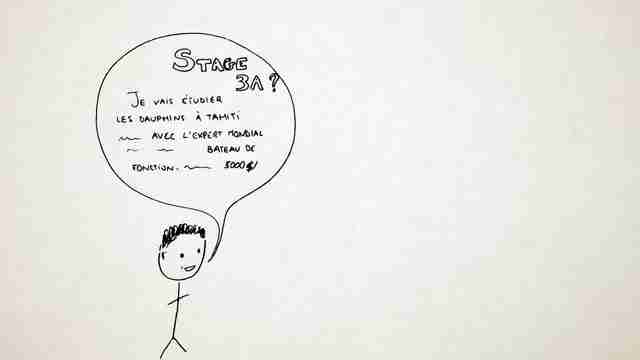 STAGE
3A ?
JE VAIS ÉTUDIER
LES DAUPHINS À TAHITI
AVEC L'EXPERT MONDIAL
BATEAU DE
FONCTION. 5000$/